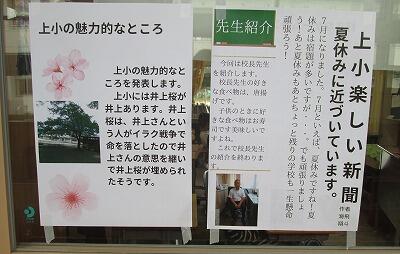 上小の魅力的なところ
上小の魅力的なと
ころを発表します。
上小には井上桜が
井上あります。井上
桜は、井上さんとい
う人がイラク戦争で
命を落としたので井
上さんの意思を継い
で井上桜が埋められ
たそうです。
上小楽しい新聞
夏休みに近づいています。
作者
翔斗
7月になりました。7月といえば、夏休みですね！夏
休みは宿題が多いですが・・・。でも頑張りましょ
う！あと夏休みもあとちょっと残りの学校も一生懸命
頑張ろう！
先生紹介
今回は校長先生
を紹介します。
校長先生の好き
な食べ物は、唐揚
げです。
子供のときに好
きな食べ物はお寿
司です美味しいで
すよね。
これで校長先生
の紹介を終わりま
す。